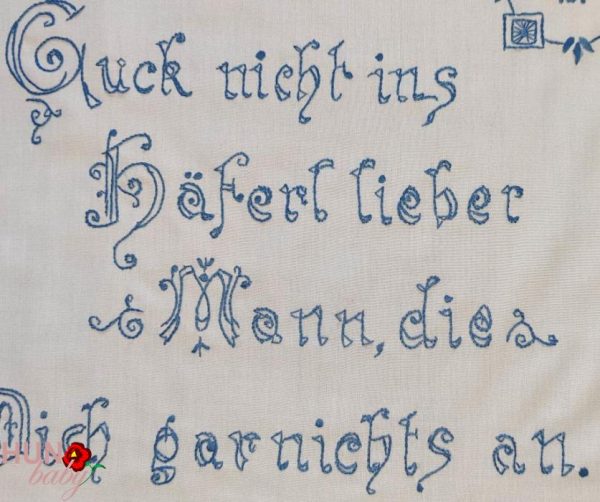 Guck nicht ins
Häferl lieber
Mann, die
Dich garnichts an.
HUN
baby